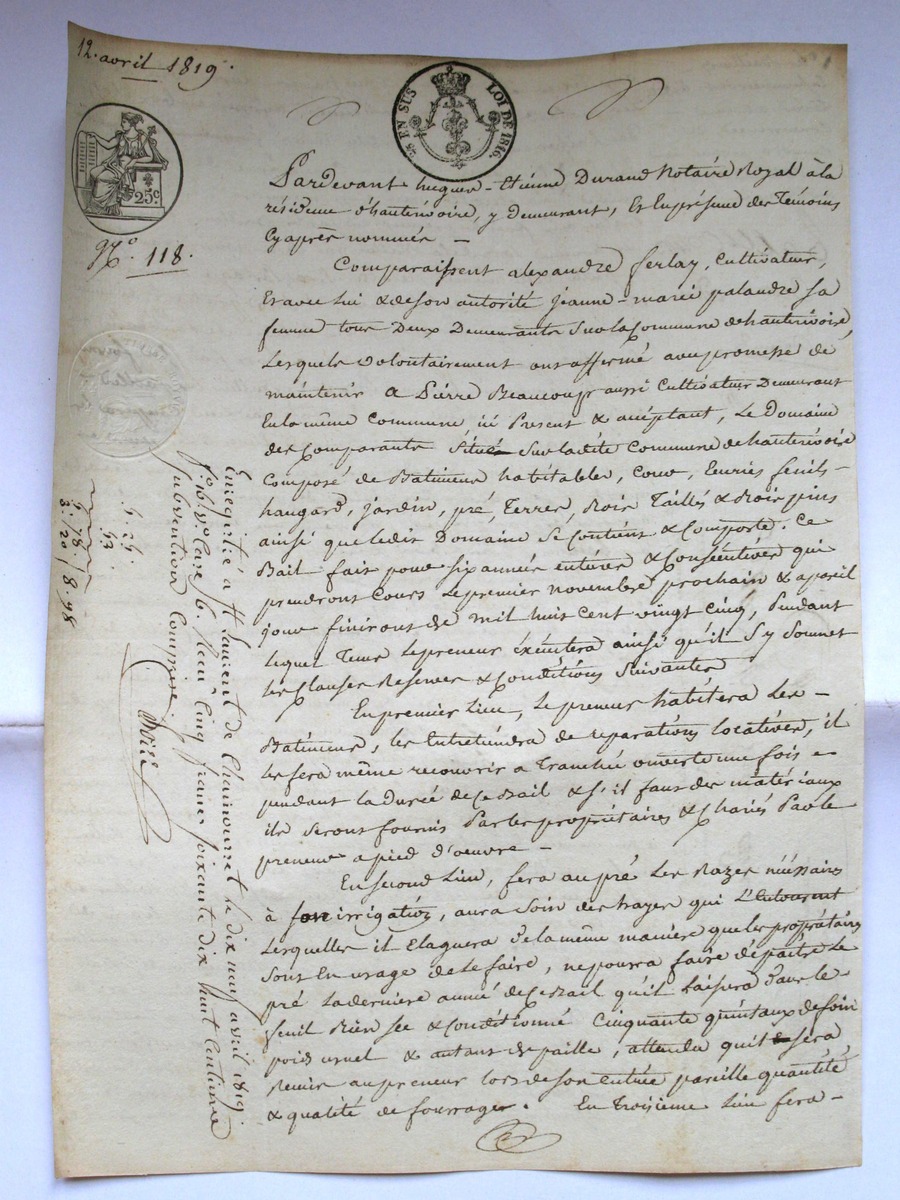 12. avril 1819.
25 EN SUS LOI DE 1816.
25 c.
N.° 118.
Pardevant hugues-Etienne Durand Notaire Royal à la
résidence d'hauterivoire, y demeurant, & En présence des Témoins
Cy après nommés —
Comparaissent alexandre ferlay, Cultivateur,
Et avec Lui & de son autorité jeanne-marie palandre sa
femme tous Deux Demeurants Sur la Commune de hauterivoire,
Lesquels Volontairement ont affermé avec promesse de
maintenir a Pierre Beaucoup aussi Cultivateur Demeurant
En la même Commune, ici Present & acceptant, Le Domaine
des Comparants Situé Sur la dite Commune de hauterivoire
Composé de Batiments habitables, Cour, Ecuries fenils-
hangard, jardin, pré, Terres, Bois Taillis & Bois pins
ainsi que le dit Domaine Se Contient & Comporte. Ce
Bail fait pour Six années entières & Consécutives qui
prendront Cours Le premier novembre prochain & a pareil
jour finiront de mil huit Cent vingt Cinq, Pendant
lequel Tems Le preneur éxécutera ainsi qu'il S'y Soumet
Les Clauses Reserves & Conditions Suivantes
En premier Lieu, Le preneur habitera Les —
Batiments, les Entretiendra de réparations locatives, il
les fera même recouvrir a Tranchée ouverte une fois
pendant la Durée de Ce Bail & S'il faut des matériaux
ils Seront fournis Par les propriétaires & Chariés Par le
preneur a pied d'oeuvre —
En Second Lieu, fera au pré Les Razes nécéssaires
à son irrigation, aura Soin des hayes qui L'Entourent
Lesquelles il Elaguera de la même maniere que les propriétaires
Sont En usage de Le faire, ne poura faire dépaitre Le
pré La derniere année de Ce Bail qu'il Laissera dans le
fenil Bien Sec & Conditionné Cinquante quintaux de foin
poids usuel & autant de paille, attendu qu'il Sera
Remis au preneur lors de son Entrée pareille quantité
& qualité de fourrage. En Troisieme Lieu fera —
Enregistré à St Laurent de Chamousset le dix neuf avril 1819.
f.° v.° Case 6. Reçu Cinq francs soixante dix huit Centimes
Subvention Comprise.
5. 25.
53.
5. 78
3. 20 / 8. 98